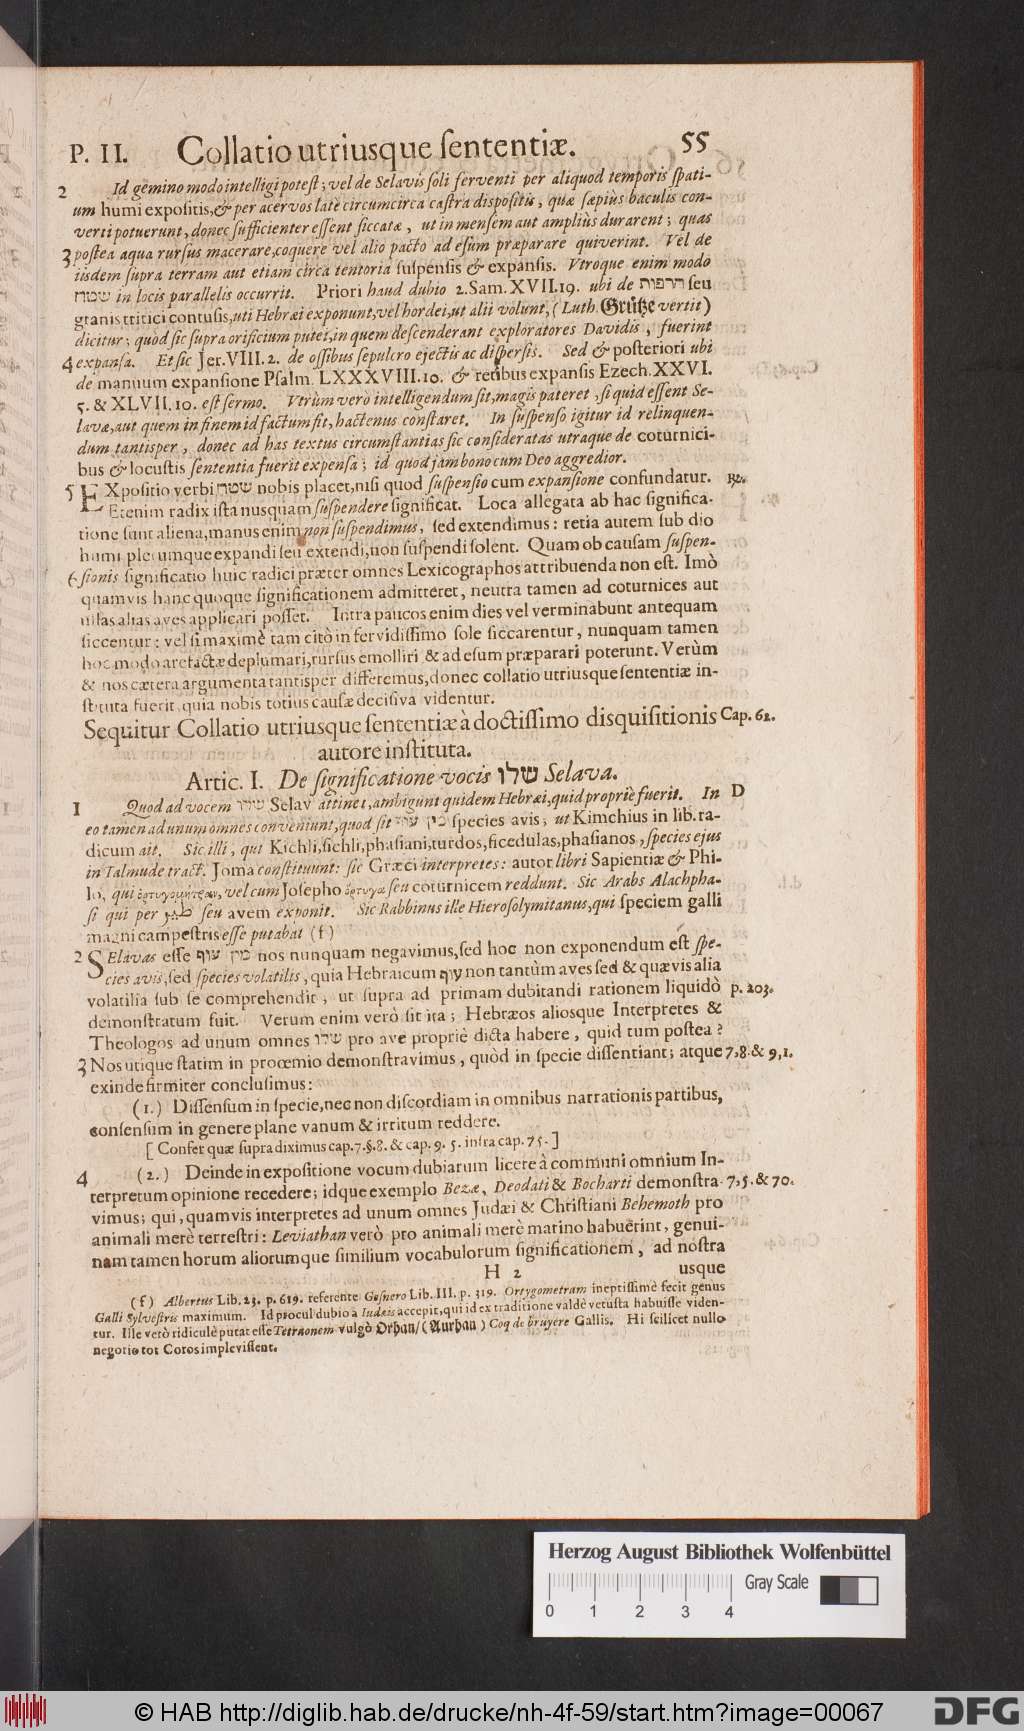 P. II. Collatio utriusque ſententiæ. 55
2 Id gemino modo intelligi poteſt; vel de Selavis ſoli ferventi per aliquod temporis ſpati-
um humi expoſitis, & per acervos latè circumcirca caſtra diſpoſitis, quæ ſæpiùs baculis con-
verti potuerunt, donec ſufficienter eſſent ſiccatæ, ut in menſem aut ampliùs durarent; quas
3 poſtea aqua rurſus macerare, coquere vel alio pacto ad eſum præparare quiverint. Vel de
iisdem ſupra terram aut etiam circa tentoria ſuſpenſis & expanſis. Vtroque enim modo
שטח in locis parallelis occurrit. Priori haud dubio 2. Sam. XVII. 19. ubi de הרפות ſeu
granis tritici contuſis, uti Hebræi exponunt, vel hordei, ut alii volunt, (Luth. Grütze vertit)
dicitur; quòd ſic ſupra orificium putei, in quem deſcenderant exploratores Davidis, fuerint
4 expanſa. Et ſic Jer. VIII. 2. de oſſibus ſepulcro ejectis ac diſperſis. Sed & poſteriori ubi
de manuum expanſione Pſalm. LXXXVIII. 10. & retibus expanſis Ezech. XXVI.
5. & XLVII. 10. eſt ſermo. Vtrùm vero intelligendum ſit, magis pateret, ſi quid eſſent Se-
lavæ, aut quem in finem id factum ſit, hactenus conſtaret. In ſuſpenſo igitur id relinquen-
dum tantisper, donec ad has textus circumſtantias ſic conſideratas utraque de coturnici-
bus & locuſtis ſententia fuerit expenſa; id quod jam bono cum Deo aggredior.
5 EXpoſitio verbi שטח nobis placet, niſi quod ſuſpenſio cum expanſione confundatur.
Etenim radix iſta nusquam ſuſpendere ſignificat. Loca allegata ab hac ſignifica-
tione ſunt aliena, manus enim non ſuſpendimus, ſed extendimus: retia autem ſub dio
humi plerumque expandi ſeu extendi, non ſuſpendi ſolent. Quam ob cauſam ſuſpen-
6 ſionis ſignificatio huic radici præter omnes Lexicographos attribuenda non eſt. Imò
quamvis hanc quoque ſignificationem admitteret, neutra tamen ad coturnices aut
ullas alias aves applicari poſſet. Intra paucos enim dies vel verminabunt antequam
ſiccentur: vel ſi maximè tam citò in fervidiſſimo ſole ſiccarentur, nunquam tamen
hoc modo arefactæ deplumari, rurſus emolliri & ad eſum præparari poterunt. Verùm
& nos cætera argumenta tantisper differemus, donec collatio utriusque ſententiæ in-
ſtituta fuerit, quia nobis totius cauſæ deciſiva videntur.
Sequitur Collatio utriusque ſententiæ à doctiſſimo disquiſitionis Cap. 61.
autore inſtituta.
Artic. I. De ſignificatione vocis שלו Selava.
1 Quod ad vocem שלו Selav attinet, ambigunt quidem Hebræi, quid propriè fuerit. In D
eo tamen ad unum omnes conveniunt, quod ſit מין עוף ſpecies avis; ut Kimchius in lib. ra-
dicum ait. Sic illi, qui Kichli, ſichli, phaſiani, turdos, ficedulas, phaſianos, ſpecies ejus
in Talmude tract. Joma conſtituunt: ſic Græci interpretes: autor libri Sapientiæ & Phi-
lo, qui ὀρτυγομήτραν, vel cum Joſepho ὄρτυγα ſeu coturnicem reddunt. Sic Arabs Alachpha-
ſi qui per seu avem exponit. Sic Rabbinus ille Hieroſolymitanus, qui ſpeciem galli
magni campeſtris eſſe putabat (f)
2 SElavas eſſe מין עוף nos nunquam negavimus, ſed hoc non exponendum eſt ſpe-
cies avis, ſed ſpecies volatilis, quia Hebraicum עוף non tantùm aves ſed & quævis alia
volatilia ſub ſe comprehendit, ut ſupra ad primam dubitandi rationem liquidò p. 203.
demonſtratum fuit. Verum enim verò ſit ita; Hebræos aliosque Interpretes &
Theologos ad unum omnes שלו pro ave propriè dicta habere, quid tum poſtea?
3 Nos utique ſtatim in proœmio demonſtravimus, quòd in ſpecie diſſentiant; atque 7, 8. & 9, 1.
exinde firmiter concluſimus:
(1.) Diſſenſum in ſpecie, nec non diſcordiam in omnibus narrationis partibus,
conſenſum in genere plane vanum & irritum reddere.
[Confer quæ ſupra diximus cap. 7. §. 8. & cap. 9. 5. infra cap. 75.]
4 (2.) Deinde in expoſitione vocum dubiarum licere à communi omnium In-
terpretum opinione recedere; idque exemplo Bezæ, Deodati & Bocharti demonſtra- 7, 5. & 70.
vimus; qui, quamvis interpretes ad unum omnes Judæi & Chriſtiani Behemoth pro
animali merè terreſtri: Leviathan verò pro animali merè marino habuerint, genui-
nam tamen horum aliorumque ſimilium vocabulorum ſignificationem, ad noſtra
H 2 usque
(f) Albertus Lib. 23. p. 619. referente Geſnero Lib. III. p. 319. Ortygometram ineptiſſimè fecit genus
Galli Sylveſtris maximum. Id procul dubio à Iudæis accepit, qui id ex traditione valdè vetuſta habuiſſe viden-
tur. Iſſe verò ridiculè putat eſſe Tetraonem vulgò Orhan / (Aurhan) Coq de bruyere Gallis. Hi ſcilicet nullo
negotio tot Coros impleviſſent.
Herzog August Bibliothek Wolfenbüttel
Gray Scale
0 1 2 3 4
© HAB http://diglib.hab.de/drucke/nh-4f-59/start.htm?image=00067 DFG